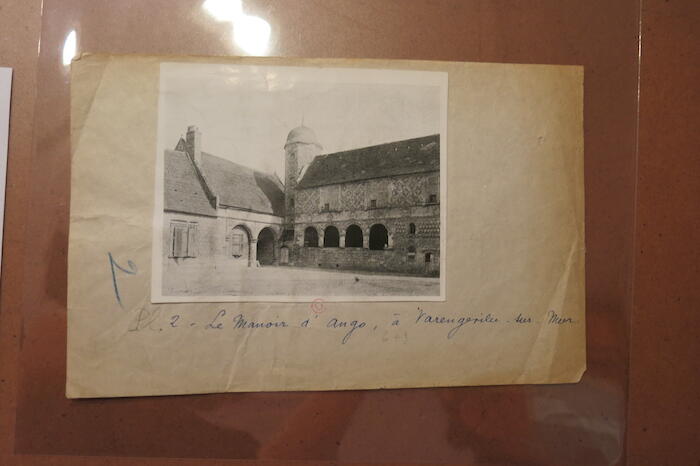 2
Pl. 2 - Le Manoir d'Ango, à Varengeville-sur-Mer